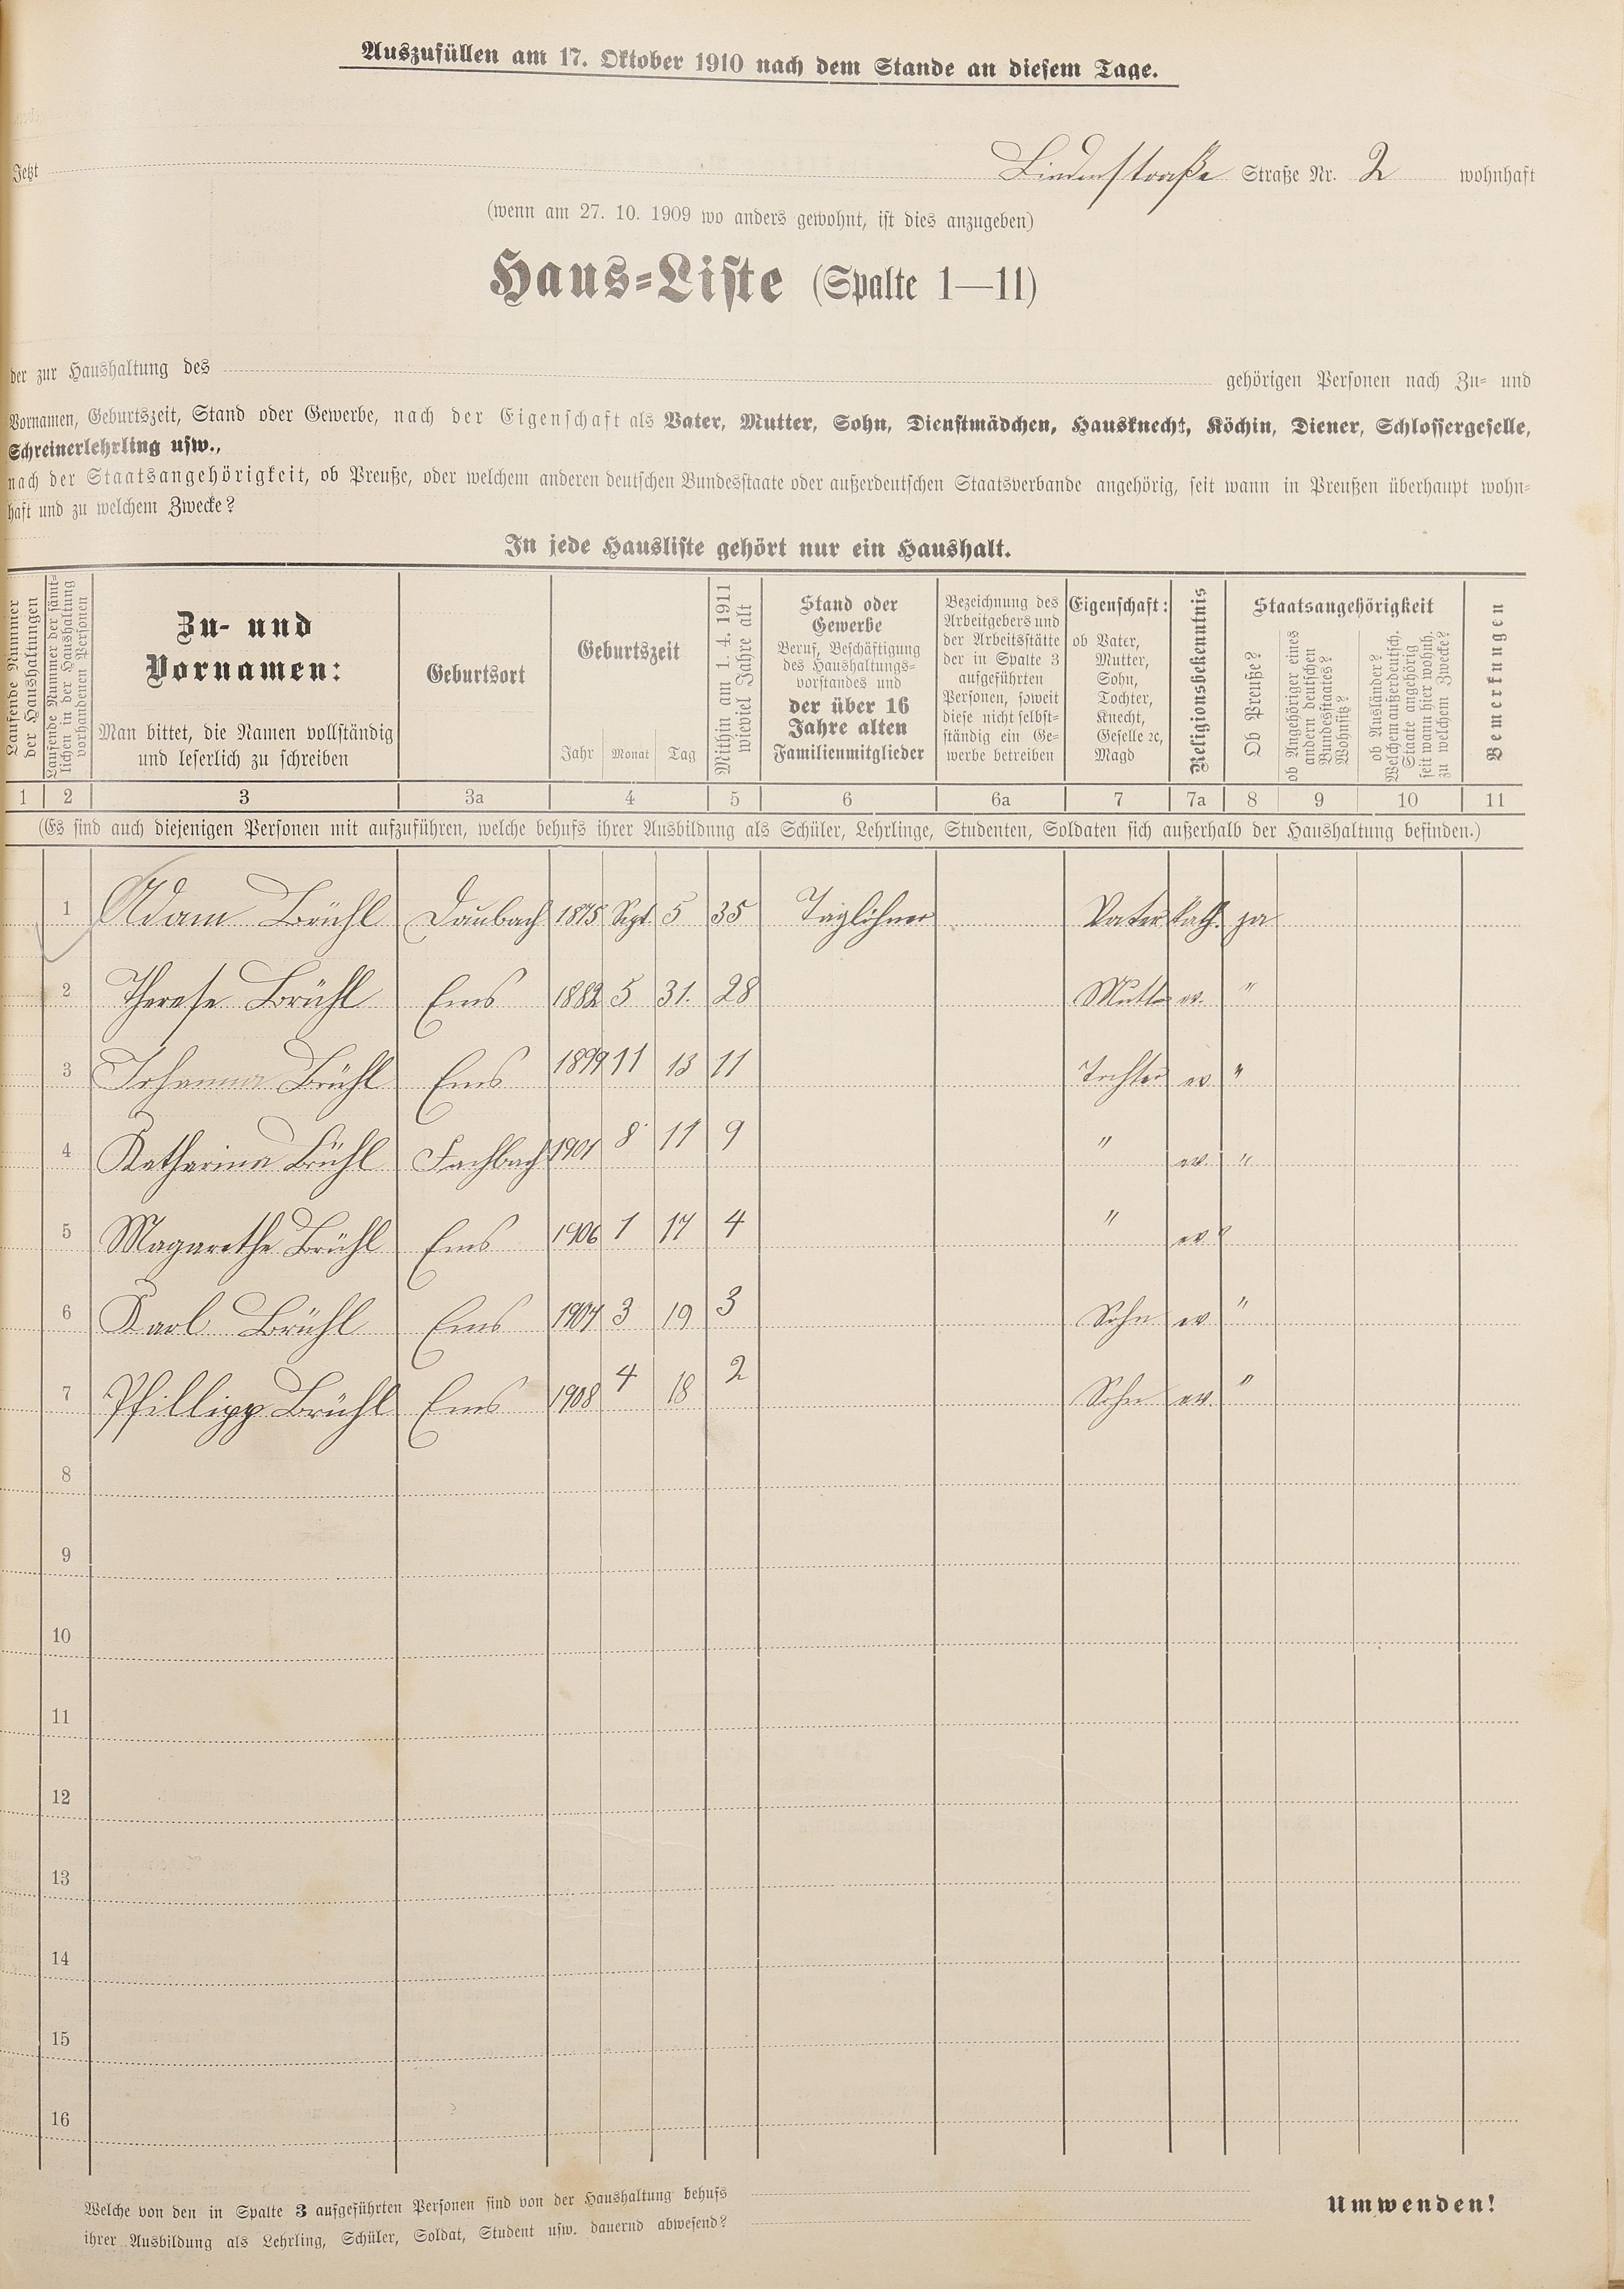 Auszufüllen am 17. Oktober 1910 nach dem Stande an diesem Tage.
Jetzt Lindenstraße Straße Nr. 2 wohnhaft
(wenn am 27. 10. 1909 wo anders gewohnt, ist dies anzugeben)
Haus-Liste (Spalte 1—11)
der zur Haushaltung des gehörigen Personen nach Zu- und
Vornamen, Geburtszeit, Stand oder Gewerbe, nach der Eigenschaft als Vater, Mutter, Sohn, Dienstmädchen, Hausknecht, Köchin, Diener, Schlossergeselle,
Schreinerlehrling usw.,
nach der Staatsangehörigkeit, ob Preuße, oder welchem anderen deutschen Bundesstaate oder außerdeutschen Staatsverbande angehörig, seit wann in Preußen überhaupt wohn-
haft und zu welchem Zwecke?
In jede Hausliste gehört nur ein Haushalt.
Laufende Nummer
der Haushaltungen
Laufende Nummer der sämt-
lichen in der Haushaltung
vorhandenen Personen
Zu- und
Vornamen:
Man bittet, die Namen vollständig
und leserlich zu schreiben
Geburtsort
Geburtszeit
Jahr Monat Tag
Mithin am 1. 4. 1911
wieviel Jahre alt
Stand oder
Gewerbe
Beruf, Beschäftigung
des Haushaltungs-
vorstandes und
der über 16
Jahre alten
Familienmitglieder
Bezeichnung des
Arbeitgebers und
der Arbeitsstätte
der in Spalte 3
aufgeführten
Personen, soweit
diese nicht selbst-
ständig ein Ge-
werbe betreiben
Eigenschaft:
ob Vater,
Mutter,
Sohn,
Tochter,
Knecht,
Geselle ꝛc,
Magd
Religionsbekenntnis
Staatsangehörigkeit
Ob Preuße?
ob Angehöriger eines
andern deutschen
Bundesstaates?
Wohnsitz?
ob Ausländer?
Welchem außerdeutsch.
Staate angehörig
seit wann hier wohnh.
zu welchem Zwecke?
Bemerkungen
1 2 3 3a 4 5 6 6a 7 7a 8 9 10 11
(Es sind auch diejenigen Personen mit aufzuführen, welche behufs ihrer Ausbildung als Schüler, Lehrlinge, Studenten, Soldaten sich außerhalb der Haushaltung befinden.)
1 Adam Brühl Daubach 1875 Sept. 5 35 Taglöhner Vater kath. ja
2 Therese Brühl Ems 1882 5 31. 28 Mutter ev. "
3 Johanna Brühl Ems 1899 11 13 11 Tochter ev "
4 Katharina Brühl Fachbach 1901 8 11 9 " ev. "
5 Magarethe Brühl Ems 1906 1 17 4 " ev "
6 Karl Brühl Ems 1907 3 19 3 Sohn ev "
7 Pfillipp Brühl Ems 1908 4 18 2 Sohn ev. "
8
9
10
11
12
13
14
15
16
Welche von den in Spalte 3 aufgeführten Personen sind von der Haushaltung behufs
ihrer Ausbildung als Lehrling, Schüler, Soldat, Student usw. dauernd abwesend?
Umwenden!